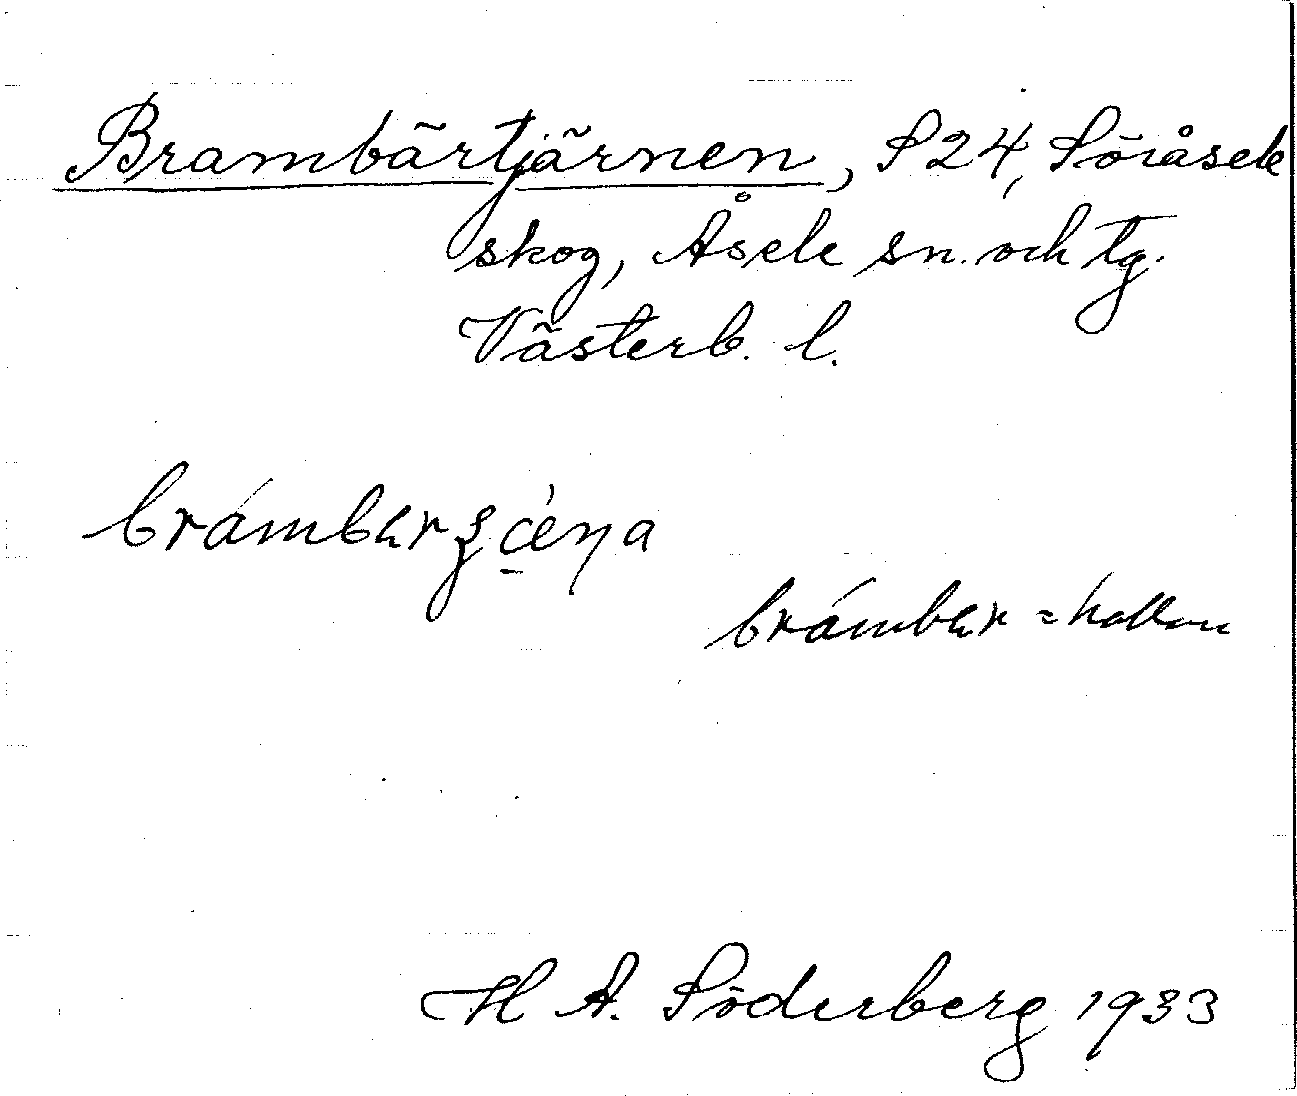 Brambärtjärnen, S24, Söråsele
skog, Åsele sn. och tg.
Västerb. l.
brámbär = hallon
H A. Söderberg 1933